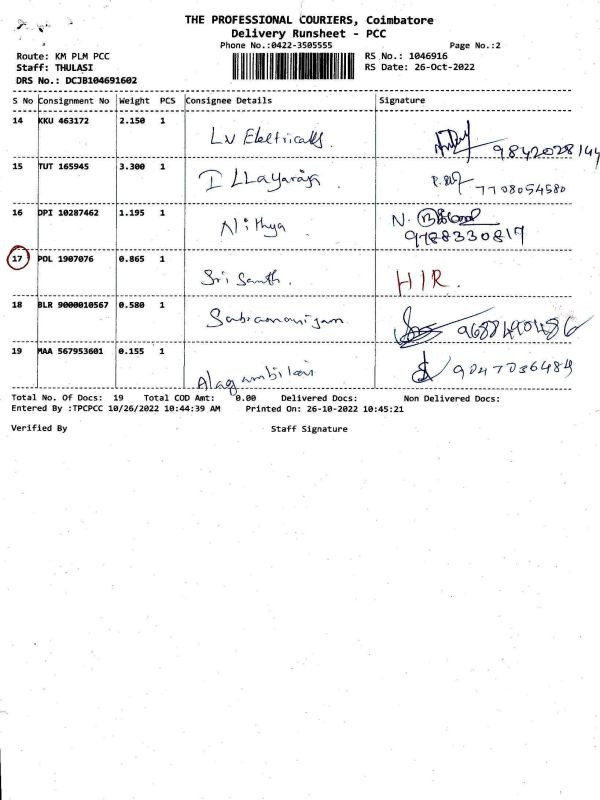 THE PROFESSIONAL COURIERS, Coimbatore
Delivery Runsheet - PCC
Phone No.:0422-3505555 Page No.:2
Route: KM PLM PCC RS No.: 1046916
Staff: THULASI RS Date: 26-Oct-2022
DRS No.: DCJB104691602
S No Consignment No Weight PCS Consignee Details Signature
14 KKU 463172 2.150 1
LV Elektricals 9842028144
15 TUT 165945 3.300 1
ILLayaraja 7708054580
16 DPI 10287462 1.195 1
Nithya N.
9788330817
17 POL 1907076 0.865 1
Sri Santh. HIR.
18 BLR 9000010567 0.580 1
Subramaniyam 9688490486
19 MAA 567953601 0.155 1
9047036484
Total No. Of Docs: 19 Total COD Amt: 0.00 Delivered Docs: Non Delivered Docs:
Entered By :TPCPCC 10/26/2022 10:44:39 AM Printed On: 26-10-2022 10:45:21
Verified By Staff Signature